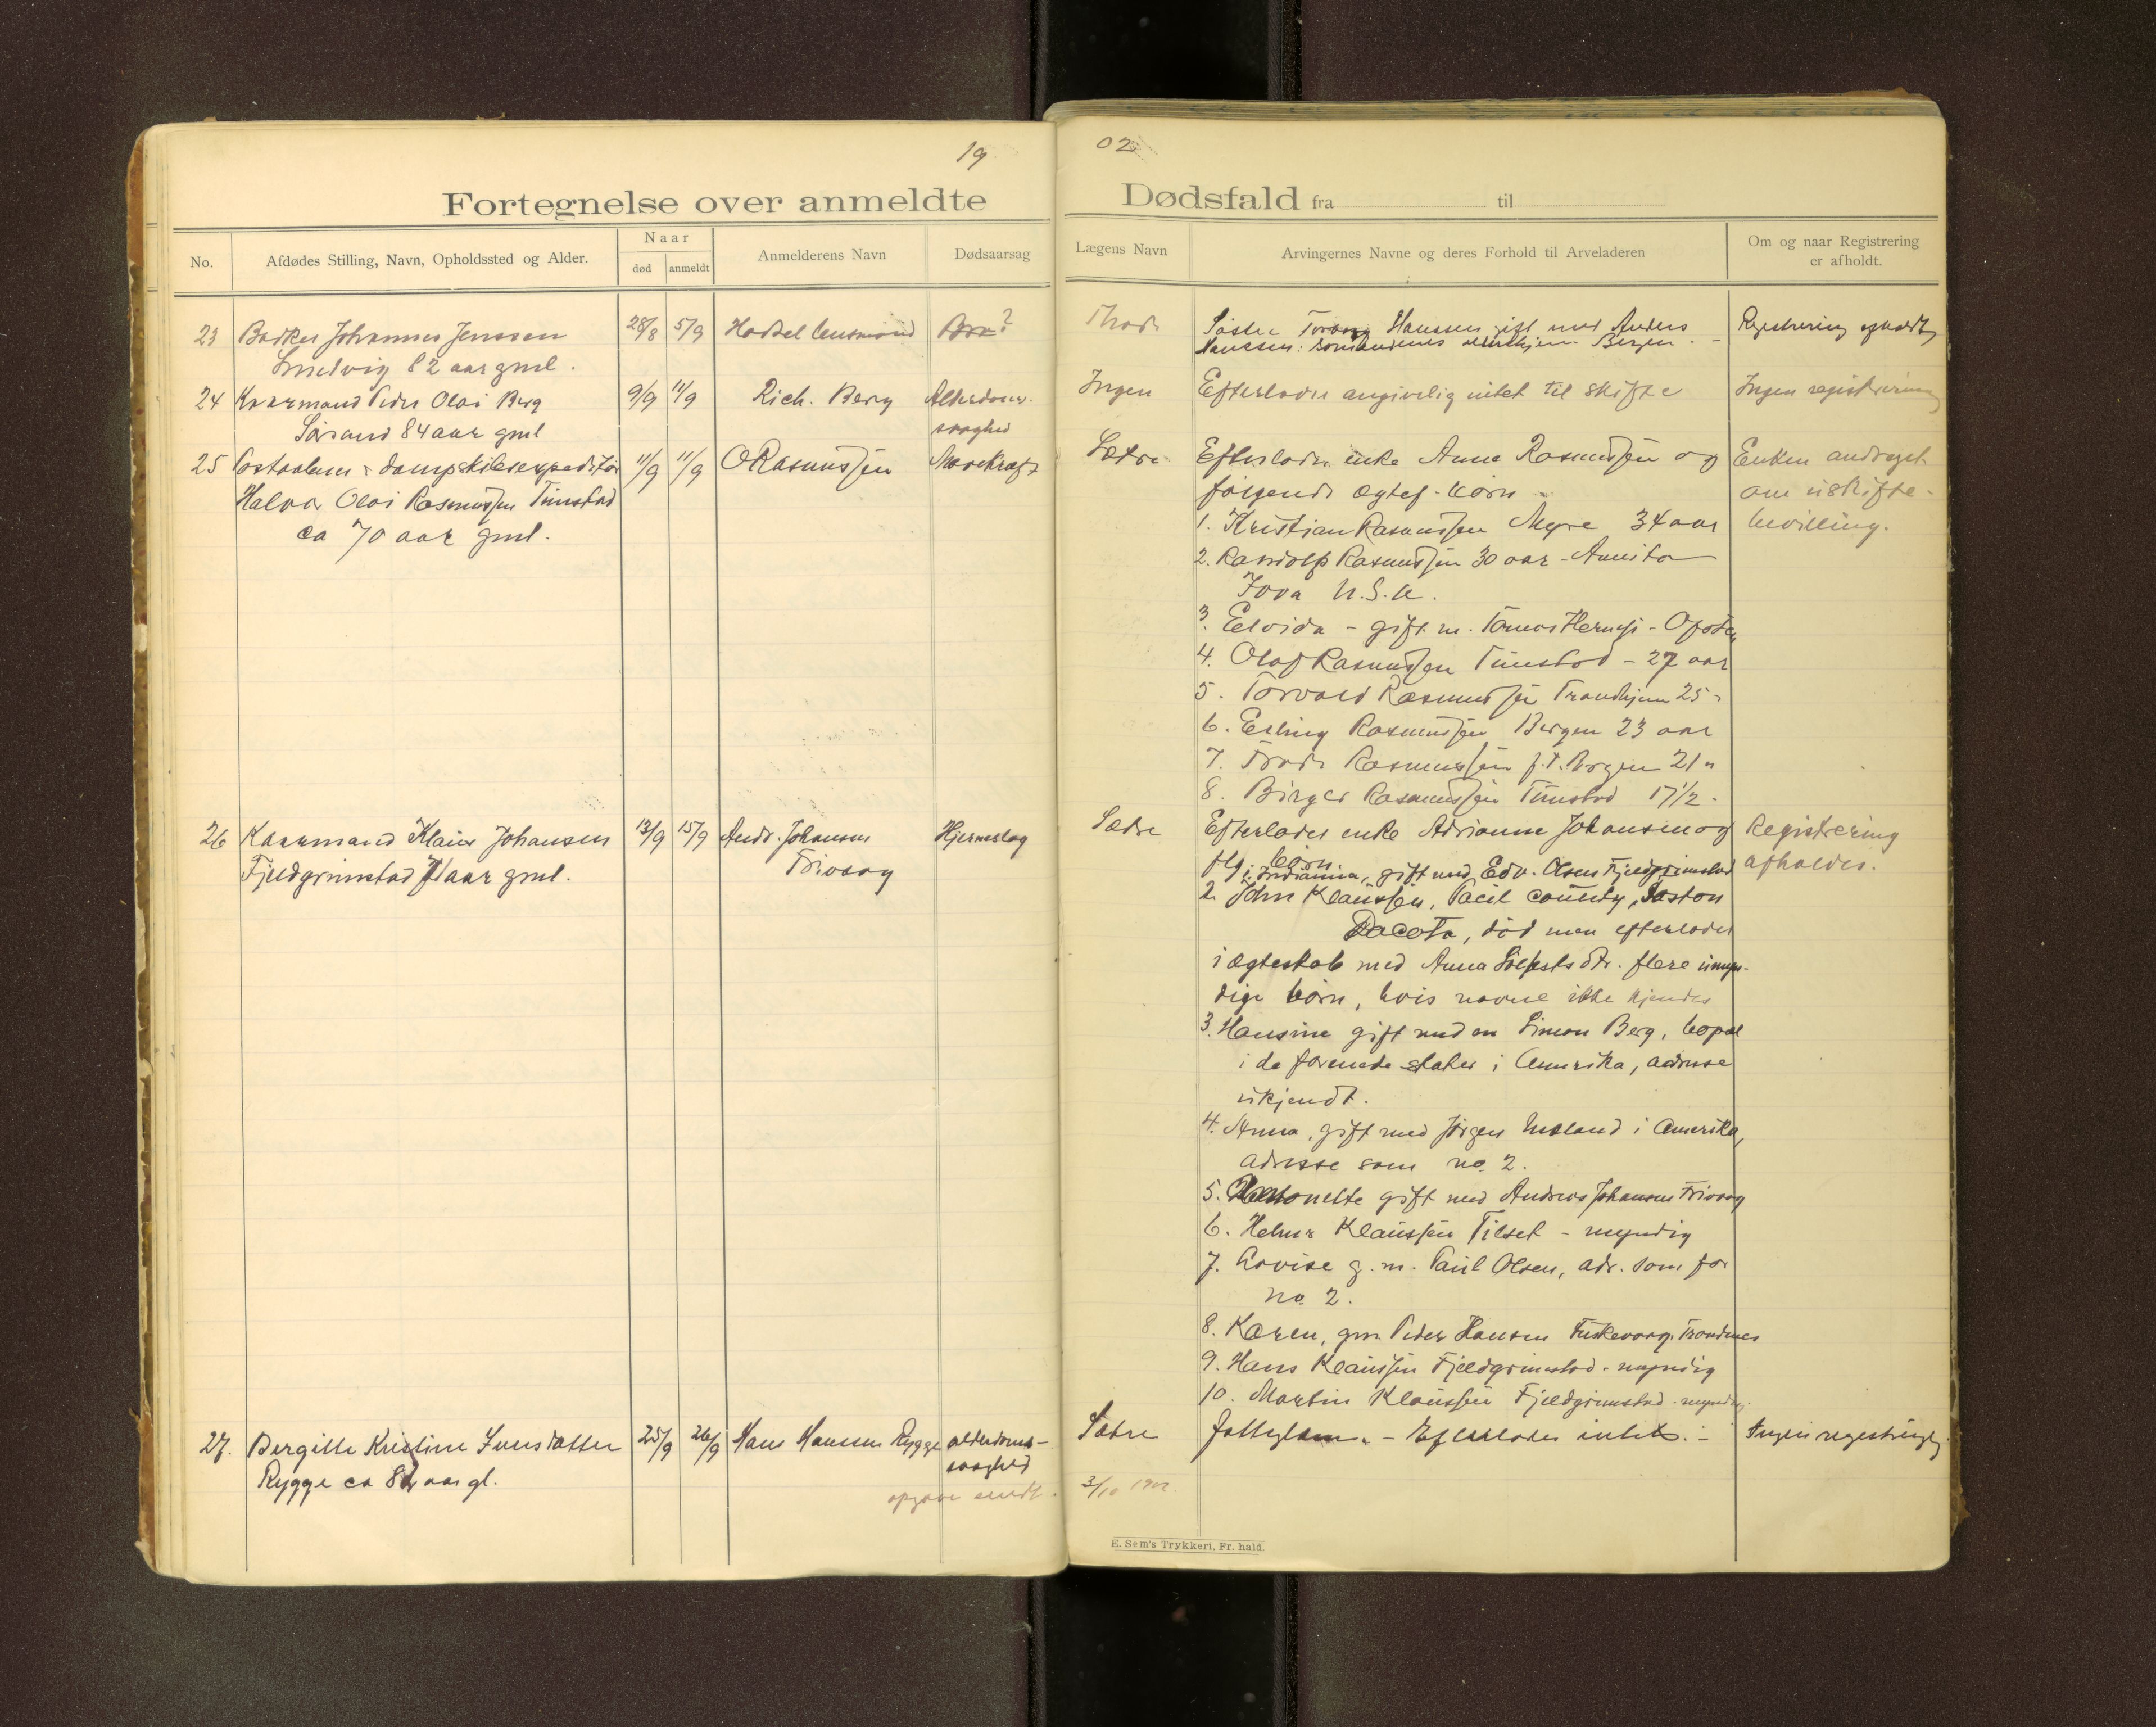 19
02
Fortegnelse over anmeldte
Dødsfald fra til
No.
Afdødes Stilling, Navn, Opholdssted og Alder.
Naar
død
anmeldt
Anmelderens Navn
Dødsaarsag
Lægens Navn
Arvingernes Navne og deres Forhold til Arveladeren
Om og naar Registrering
er afholdt.
23 Johannes Jenssen 28/8 5/9 Hadsel ?
Smedvig 82 aar gml.
Søster Hanssen gift med Anders
Hanssen: Bergen. -
Registrering
24 Kaarmand Peder Olai Berg 9/9 11/9 Rich. Berg Alderdoms-
Sørsand 84 aar gml svaghed
Ingen Efterlader angivelig intet til skifte Ingen registrering
25 Postaabner & dampskibsexpeditør 11/9 11/9 O Rasmussen Mavekræft
Halvor Olai Rasmussen Tunstad
ca 70 aar gml.
Sætre Efterlader enke Anna Rasmussen og Enken andraget
følgende ægtef. børn om uskifte-
1. Kristian Rasmussen Myre 34 aar bevilling.
2. Randolf Rasmussen 30 aar - Annita
Iova U.S.A.
3. Elvida - gift m. Tomas - Ofoten
4. Olaf Rasmussen Tunstad - 27 aar
5. Torvald Rasmussen Trondhjem 25 "
6. Erling Rasmussen Bergen 23 aar
7. Rasmussen p.t. Bergen 21 "
8. Birger Rasmussen Tunstad 17 1/2 -
26 Kaarmand Klaus Johansen 13/9 15/9 Andr. Johansen Hjerneslag
Fjeldgrimstad 71 aar gml. Frivaag
Sætre Efterlader enke Adrianne Johansen og Registrering
flg. børn afholdes.
1. gift med Edv. Olsen Fjeldgrimstad
2. John Klaussen, county,
Dacota, død men efterlader
i ægteskab med Anna flere umyn-
dige børn, hvis navne ikke kjendes
3. Hansine gift med en Simon Berg, bopæl
i de forenede stater i Amerika, adresse
ukjendt.
4. Anna, gift med Jørgen i Amerika,
adresse som no. 2.
5. gift med Andreas Johansen Frivaag
6. Helmer Klaussen Tilset - myndig
7. Lovise g. m. Paul Olsen, adr. som for
no. 2.
8. Karen, gm. Peder Hansen Trondenes
9. Hans Klaussen Fjeldgrimstad - myndig
10. Martin Klaussen Fjeldgrimstad - myndig
27. Bergitte Kristine 25/9 26/9 Hans Hanssen Rygge alderdoms-
Rygge ca 82 aar gl. svaghed
Sætre fattiglem. - Efterlader intet. - Ingen
opgave sendt 3/10 1902.
E. Sem's Trykkeri, Fr. hald.